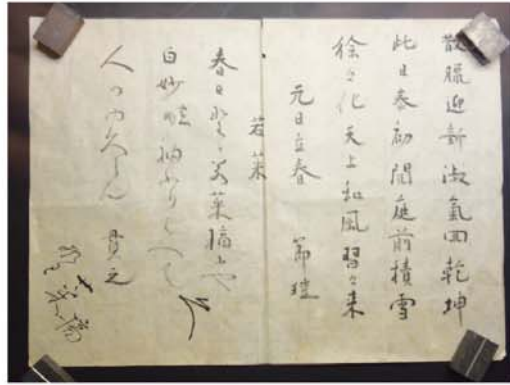 散臘迎新淑氣回乾坤
此日春初開庭前積雪
徐々化天上和風習々来
元日立春 節
若菜
春日野の若菜摘にや
白妙の袖ふりはへて
人のゆくらん 貫之